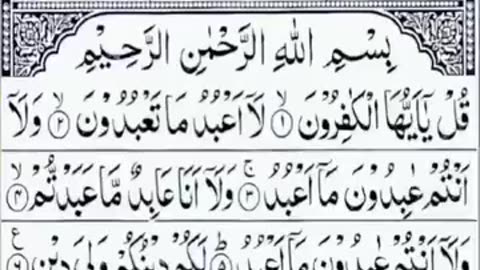 بِسْمِ اللهِ الرَّحْمٰنِ الرَّحِيْمِ
قُلْ يٰۤاَيُّهَا الْكٰفِرُوْنَ ۙ﴿۱﴾ لَاۤ اَعْبُدُ مَا تَعْبُدُوْنَ ۙ﴿۲﴾ وَلَاۤ
اَنْتُمْ عٰبِدُوْنَ مَاۤ اَعْبُدُ ۚ﴿۳﴾ وَلَاۤ اَنَا عَابِدٌ مَّا عَبَدْتُّمْ ۙ﴿۴﴾
وَلَاۤ اَنْتُمْ عٰبِدُوْنَ مَاۤ اَعْبُدُ ؕ﴿۵﴾ لَكُمْ دِيْنُكُمْ وَلِيَ دِيْنِ ﴿۶﴾ ع